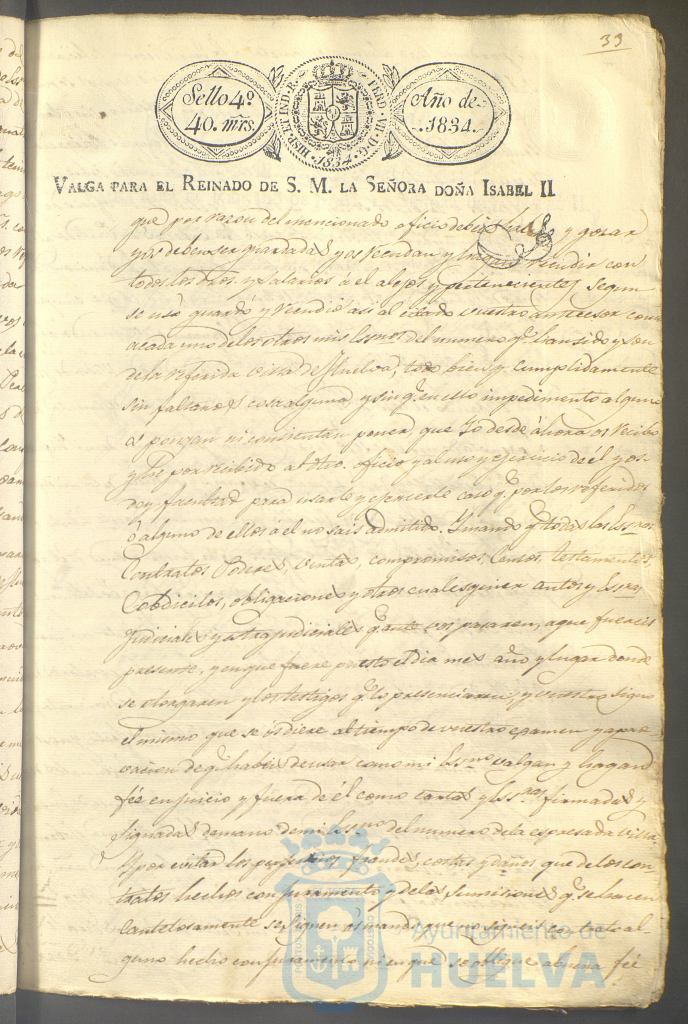 33
Sello 4º
40. mrs.
HISP. ET IND. R. FERD. VII. D. G. 1834.
Año de
1834.
VALGA PARA EL REINADO DE S. M. LA SEÑORA DOÑA ISABEL II
que por razon del mencionado oficio debeis y gozar
y os deben ser guardadas y os recudan y hagan recudir con
todos los dros. y salarios á el anejos y pertenecientes segun
se usó guardó y recudió asi al citado vuestro antecesor como
a cada uno de los otros mis Essnos del numero q. han sido y son
de la referida Villa de Huelva, todo bien y cumplidamente
sin faltaros cosa alguna, y sin q. en ello impedimento alguno
os pongan ni consientan poner, que Yo desde ahora os recibo
y he por recibido al dho. oficio y al uso y ejercicio de él y os
doy facultad para usarle y ejercerle caso q. por los referidos
ó alguno de ellos á el no seais admitido. Y mando q. todas las Essras
Contratos Poderes, Ventas, compromisos, Censos, testamentos,
Cobdicilos, obligaciones y otros cualesquiera autos y Essras
Judiciales y extrajudiciales q. ante vos pasaren, a que fuereis
presente, y en que fuere puesto el dia mes año y lugar donde
se otorgaren y los testigos q. lo presenciaren, y vuestro signo
el mismo que se os diere al tiempo de vuestro examen y apro
vacion de q. habeis de usar como mi Essno valgan y hagan
fée en juicio y fuera de él como cartas y Essras firmadas y
signadas de mano de mi Essno del numero de la espresada Villa.
Y por evitar los perjuicios, fraudes, costas y daños que de los con
tratos hechos con juramento y de las sumisiones q. se hacen
cautelosamente se siguen os mando que no signeis contrato al
guno hecho con juramento ni en que se obligue a buena fée
Ayuntamiento de
HUELVA